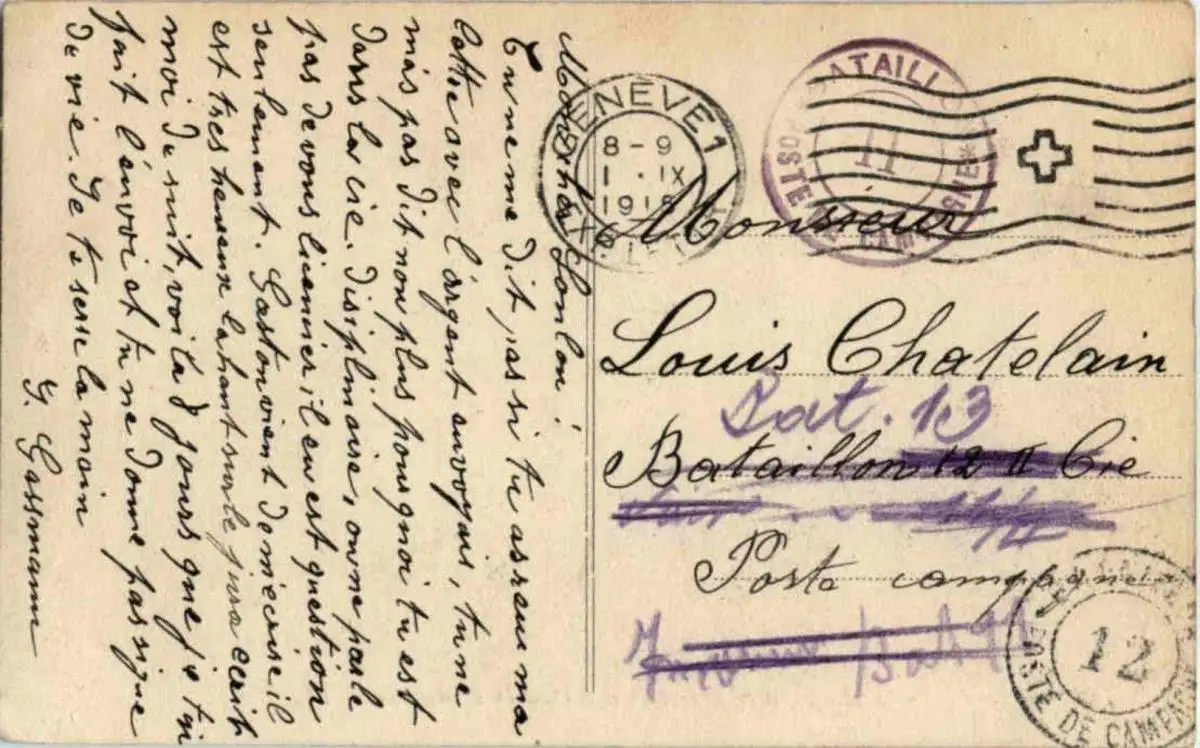 Mon cher Loulou!
Tu ne me dit pas si tu as reçu ma
lettre avec l'argent envoyais, tu ne
m'as pas dit non plus pourquoi tu est
dans la vie. disiplinaire, on ne parle
pas de vous licencier il en est question
seulement. Gaston vient de m'écrire il
est tres heureux la haut sur le jura ecrit
moi de suit, voila 8 jours que je t'ai
fait l'envoi et tu ne donne pas signe
de vie. Je te serre la main
G. Gassmann
GENEVE 1
8-9
1.IX
1918
BATAILLON
11
POSTE DE CAMPAGNE
Monsieur
Louis Chatelain
Bat. 13
Bataillon 12 II Cie
Poste campagne
Bat
12
POSTE DE CAMPAGNE